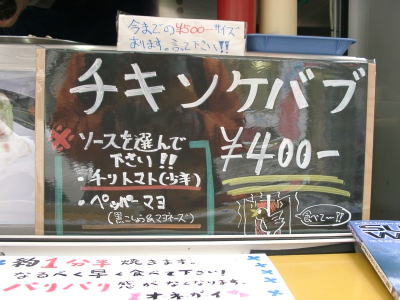 今までの¥500-サイズ
あります。言って下さい!!
チキンケバブ
ソースを選んで
下さい!!
・チリトマト(少洋)
・ペッパーマヨ
(黒こしょう&マヨネーズ)
¥400-
食べて〜!!
約1分半焼きます。
なるべく早く食べて下さい!
パリパリ感がなくなります。